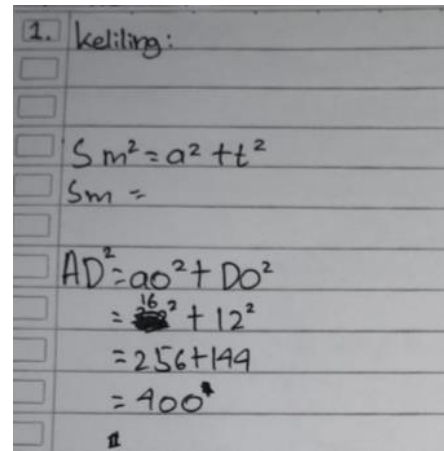 1. Keliling:
Sm² = a² + t²
Sm =
AD² = ao² + DO²
= 16² + 12²
= 256 + 144
= 400